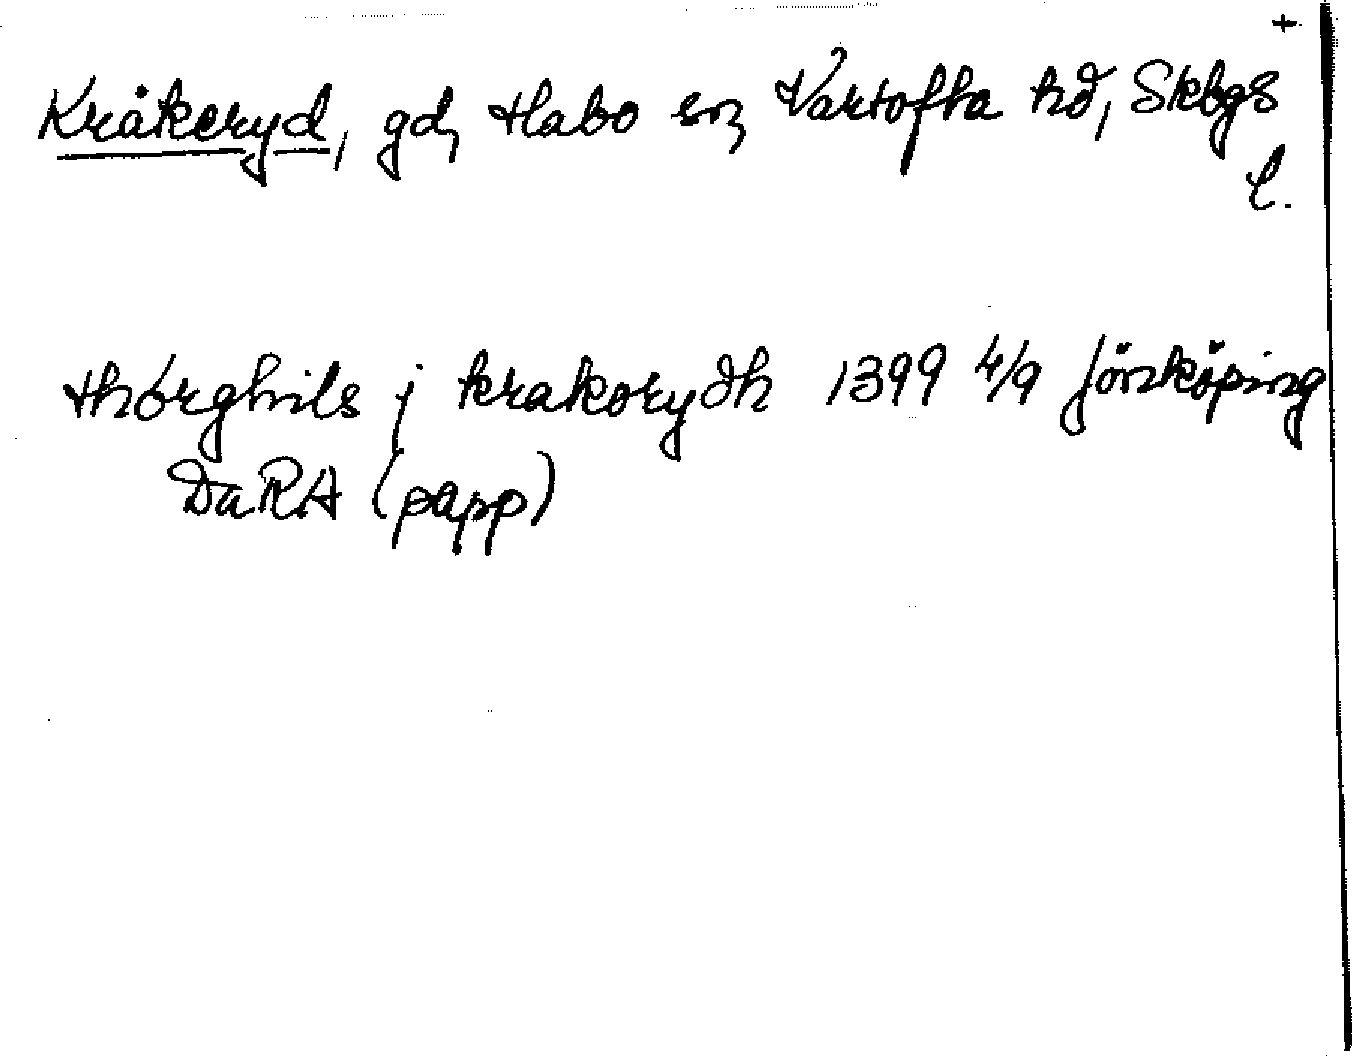 +
Kråkeryd, gd, Habo sn, Vartofta hd, Skbgs
l.
thorghils j krakorydh 1399 4/9 Jönköping
DaRA (papp)